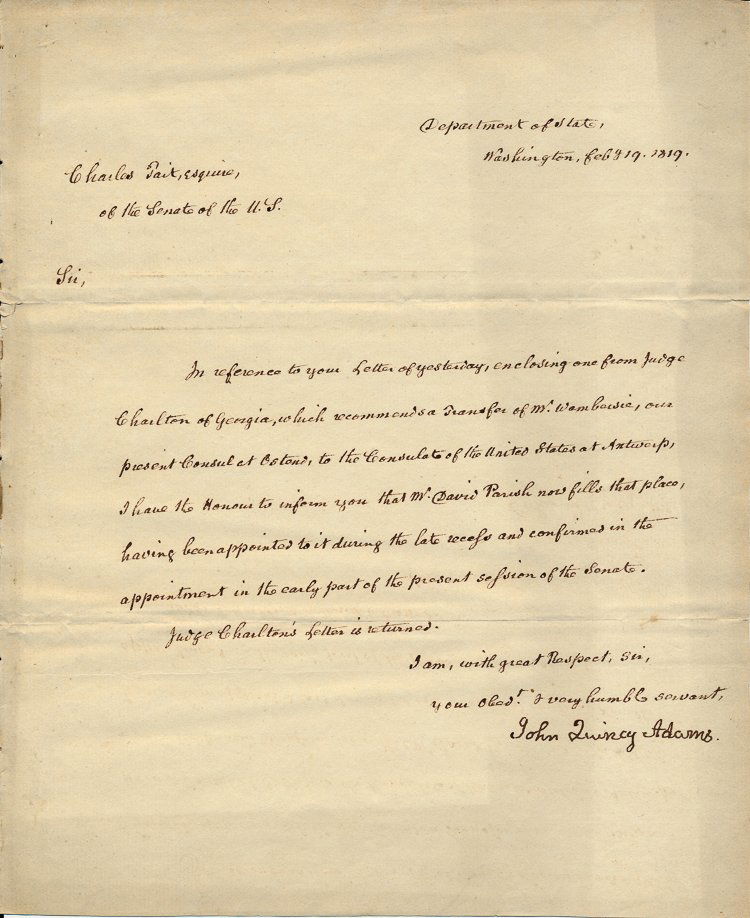 Department of State,
Washington, Feby 19. 1819.
Charles Tait, Esquire,
of the Senate of the U.S.
Sir,
In reference to your Letter of yesterday, enclosing one from Judge
Charlton of Georgia, which recommends a Transfer of Mr. Wambersie, our
present Consul at Ostend, to the Consulate of the United States at Antwerp,
I have the Honour to inform you that Mr. David Parish now fills that place,
having been appointed to it during the late recess and confirmed in the
appointment in the early part of the present session of the Senate.
Judge Charlton's Letter is returned.
I am, with great Respect, Sir,
your Obedt. & very humble servant,
John Quincy Adams.